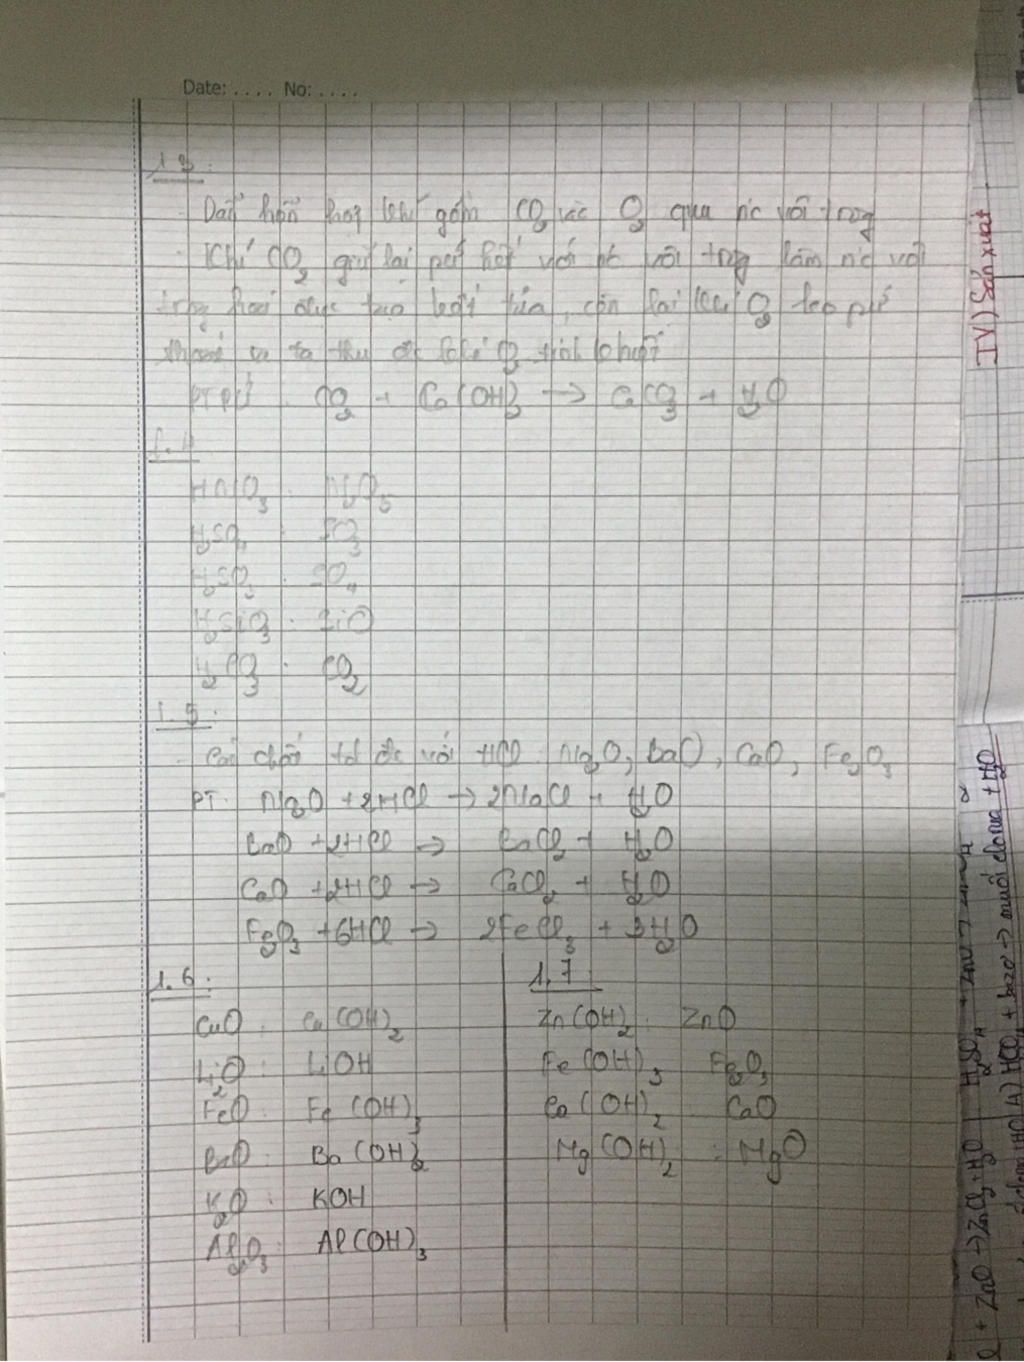 Date: .... No: ....
1.3:
Dẫn hỗn hợp khí gồm CO2 và O2 qua nc vôi trong
Khí CO2 giữ lại pứ hết với nc vôi trong làm nc vôi
trong tạo kết tủa, còn lại khí O2 ko pứ
thoát ra ta thu đc khí O2 tinh khiết
PTPỨ: CO2 + Ca(OH)2 → CaCO3 + H2O
1.4
HNO3: N2O5
H2SO4: SO3
H2SO3: SO4
H2SiO3: SiO
H2CO3: CO2
1.5:
Các chất td đc với HCl: Na2O, BaO, CaO, Fe2O3
PT: Na2O + 2HCl → 2NaCl + H2O
BaO + 2HCl → BaCl2 + H2O
CaO + 2HCl → CaCl2 + H2O
Fe2O3 + 6HCl → 2FeCl3 + 3H2O
1.6:
CuO: Cu(OH)2
Li2O: LiOH
FeO: Fe(OH)3
BaO: Ba(OH)2
K2O: KOH
Al2O3: Al(OH)3
1.7
Zn(OH)2: ZnO
Fe(OH)3 Fe2O3
Ca(OH)2 CaO
Mg(OH)2: MgO
IV) Sản xuất
+ ZnO → ZnCl2 + H2O
+ bazơ → muối clorua + H2O